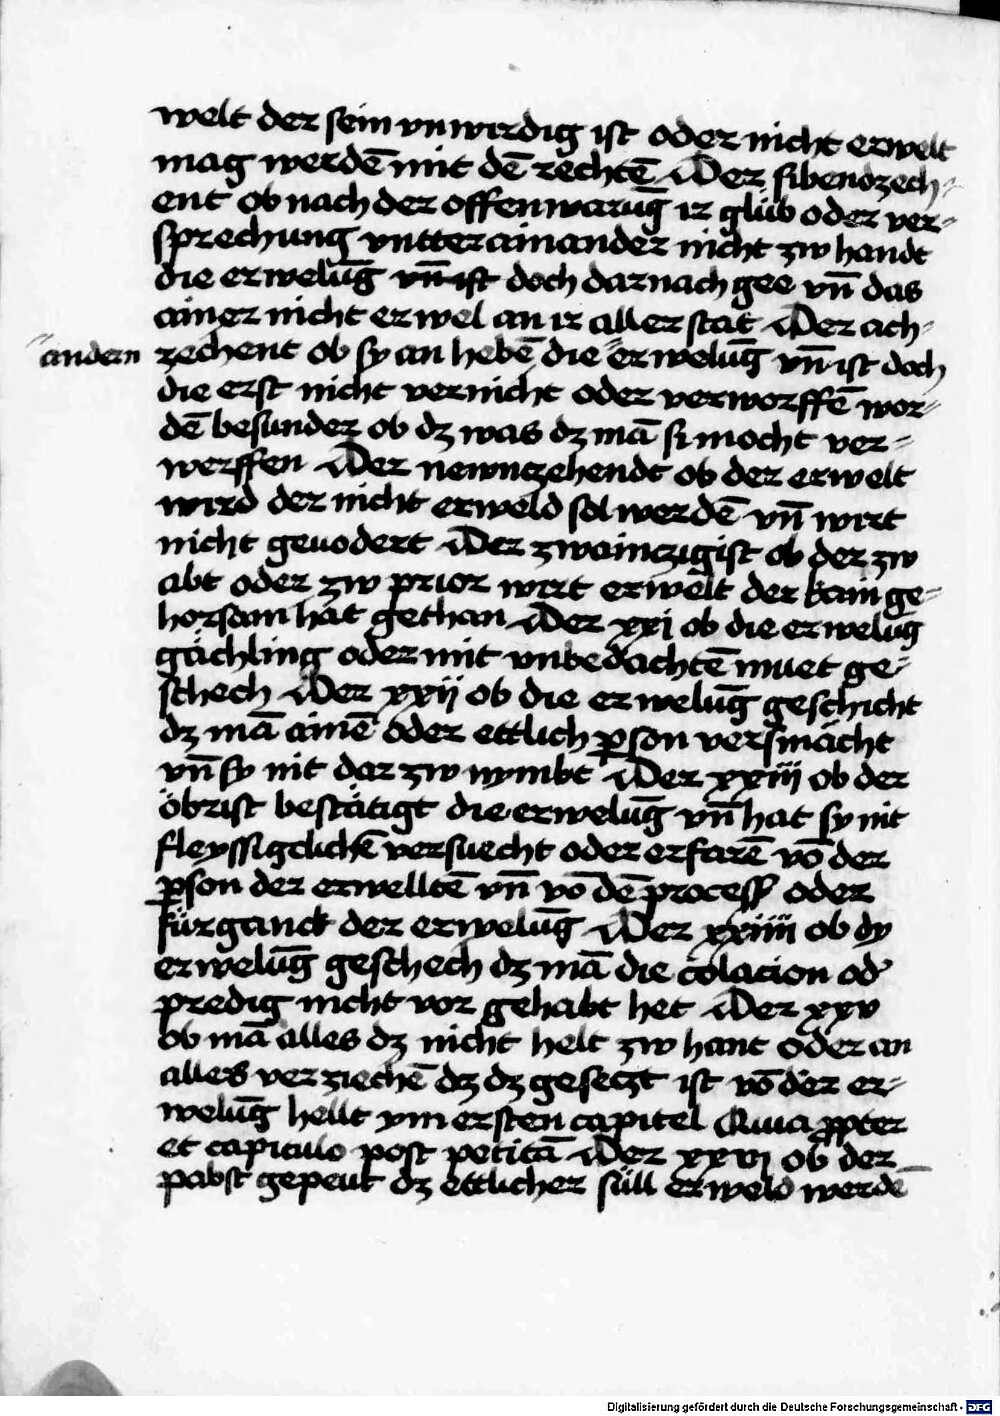 welt der sein vnwirdig ist oder nicht erwelt
mag werdē mit dē rechtē Der sibendzech-
ent ob nach der offenwarūg ir glüb oder ver-
sprechung vntter ainander nicht zw handt
die erwelūg vn̄ ist doch darnach gee vn̄ das
ainer nicht erwel an ir aller stat Der ach-
andern zechent ob sy an hebē die erwelūg vn̄ ist doch
die erst nicht vernicht oder verworffē wor-
dē besunder ob dz was dz mā si mocht ver-
werffen Der newnczehendt ob der erwelt
wird der nicht erweld sol werdē vn̄ wirt
nicht geuodert Der zwainczigist ob der zw
abt oder zw prior wirt erwelt der kain ge-
horsam hat gethan Der xxj ob die erwelūg
gächling oder mit vnbedachtē muet ge-
schech Der xxij ob die erwelūg geschicht
dz mā ainē oder ettlich ꝑson versmächt
vn̄ sy nit dar zw nymbt Der xxiij ob der
öbrist bestätigt die erwelūg vn̄ hat sy nit
fleyssigclichē versuecht oder erfarē vō der
ꝑson der erwelltē vn̄ vō dē process oder
fürganck der erwelūg Der xxiiij ob dy
erwelūg geschech dz mā die colacion od'
predig nicht vor gehabt het Der xxv
ob mā alles dz nicht helt zw hant oder an
alles verziechē dz dz geseczt ist vō der er-
welūg hellt ym ersten capitel Quia ꝓpter
et capitulo post petitā Der xxvj ob der
pabst gepeut dz ettlicher süll erweld werdē
Digitalisierung gefördert durch die Deutsche Forschungsgemeinschaft - DFG